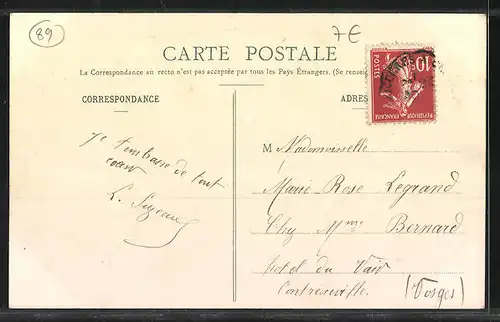 89
7€
CARTE POSTALE
La Correspondance au recto n'est pas acceptée par tous les Pays Étrangers. (Se rensei
CORRESPONDANCE
ADRES
10
POSTES
REPUBLIQUE FRANÇAISE
Je t'embrasse de tout
coeur
L.
M Mademoiselle
Marie-Rose Legrand
Chy Mme Bernard
hotel du Vair
Contrexeville.
(Vosges)